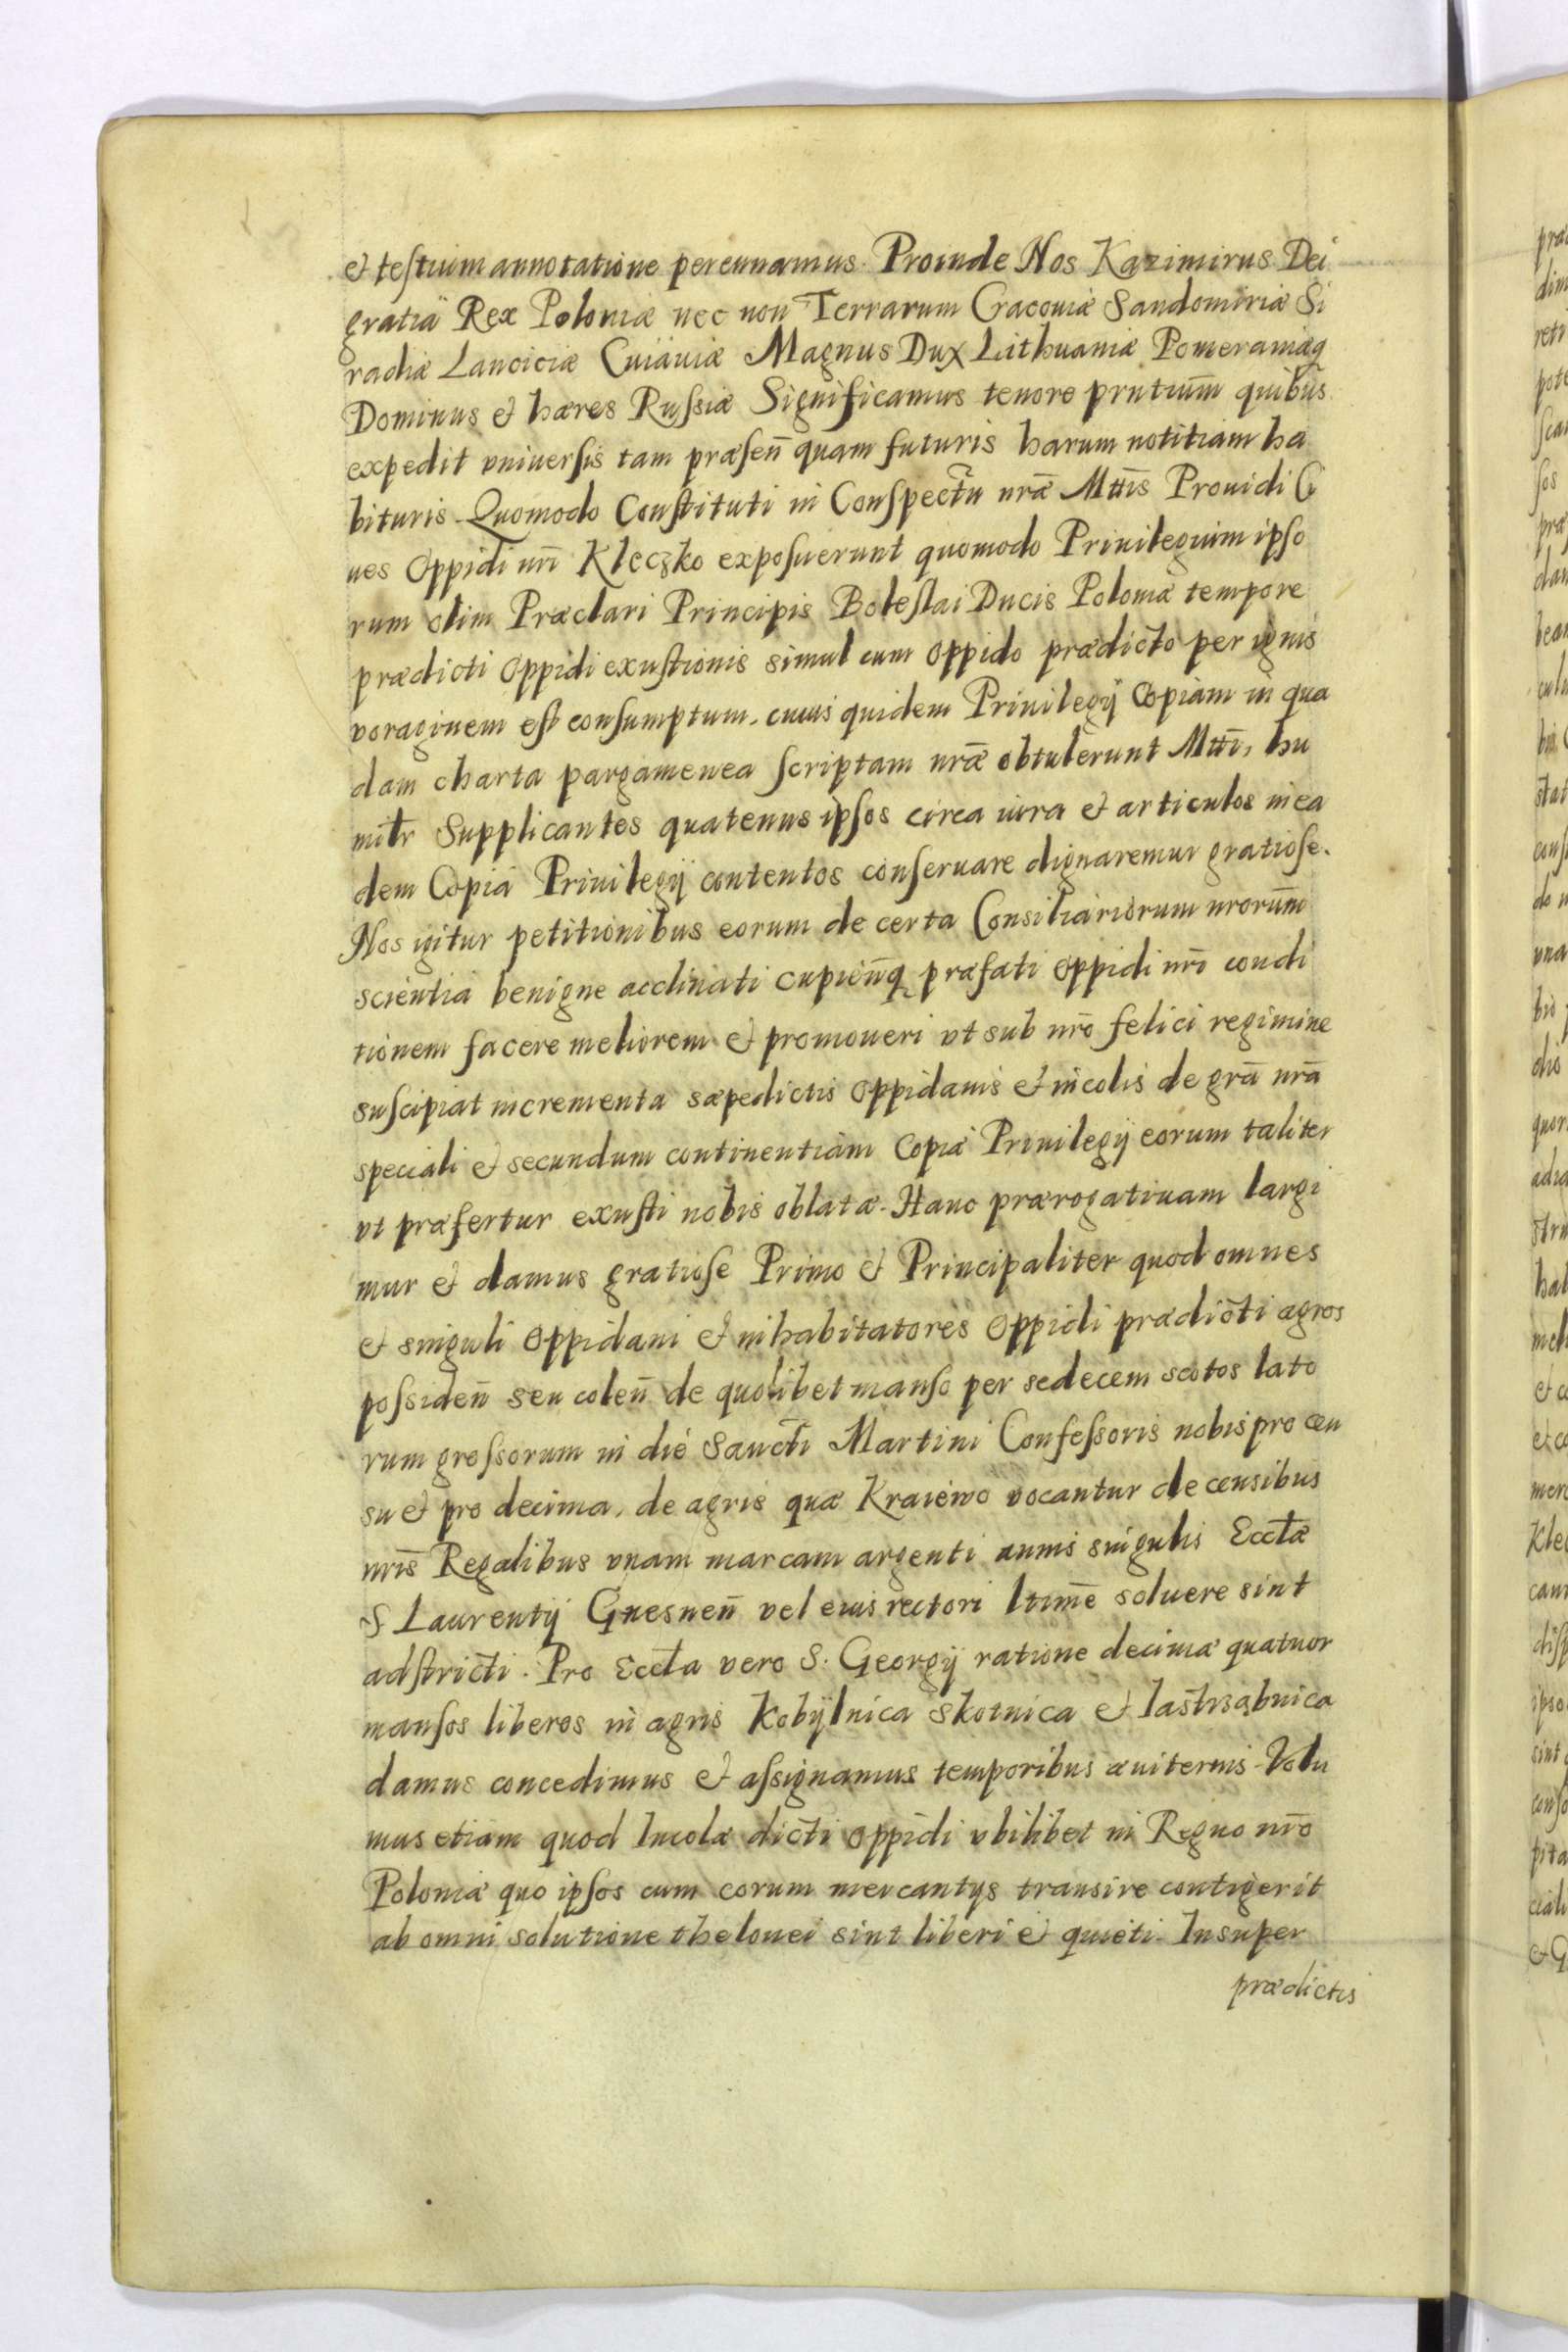 et testium annotatione perennamus. Proinde Nos Kazimirus Dei
gratiâ Rex Poloniæ nec non Terrarum Cracouiæ Sandomiriæ Si
radiæ Lanciciæ Cuiauiæ Magnus Dux Lithuaniæ Pomeraniæq
Dominus et hæres Russiæ Significamus tenore pñtium quibus
expedit vniuersis tam præsen̄ quam futuris harum notitiam ha
bituris. Quomodo Constituti in Conspectu nr̄æ Mttis Prouidi Ci
ues Oppidi nr̄i Kleczko exposuerunt quomodo Priuilegium ipso
rum olim Præclari Principis Boleslai Ducis Poloniæ tempore
prædicti Oppidi exustionis simul cum Oppido prædicto per ignis
voraginem est consumptum. cuius quidem Priuilegij Copiam in qua
dam charta pargamenea scriptam nr̄æ obtulerunt Mtti, hu
milr Supplicantes quatenus ipsos circa iura et articulos in ea
dem Copia Priuilegij contentos conseruare dignaremur gratiose.
Nos igitur petitionibus eorum de certa Consiliariorum nrorum̄
scientia benigne acclinati cupien̄q præfati Oppidi nr̄i condi
tionem facere meliorem et promoueri vt sub nr̄o felici regimine
suscipiat incrementa sæpedictis Oppidanis et incolis de grā nrā
speciali et secundum continentiam Copiæ Priuilegij eorum taliter
vt præfertur exusti nobis oblatæ. Hanc prærogatiuam largi
mur et damus gratiose Primo et Principaliter quod omnes
et singuli Oppidani et inhabitatores Oppidi prædicti agros
possiden̄ seu colen̄ de quolibet manso per sedecem scotos lato
rum grossorum in die Sancti Martini Confessoris nobis pro cen
su et pro decima, de agris quæ Kraiewo vocantur de censibus
nr̄is Regalibus vnam marcam argenti annis singulis Ecctæ
S Laurentij Gnesnen̄ vel eius rectori ltime soluere sint
adstricti. Pro Eccta vero S. Georgij ratione decimæ quatuor
mansos liberos in agris Kobÿlnica Skotnica et Iastrzabnica
damus concedimus et assignamus temporibus æuiternis. Volu
mus etiam quod Incolæ dicti Oppidi vbilibet in Regno nr̄o
Poloniæ quo ipsos cum eorum mercantijs transire contigerit
ab omni solutione thelonei sint liberi et quieti. Insuper
prædictis